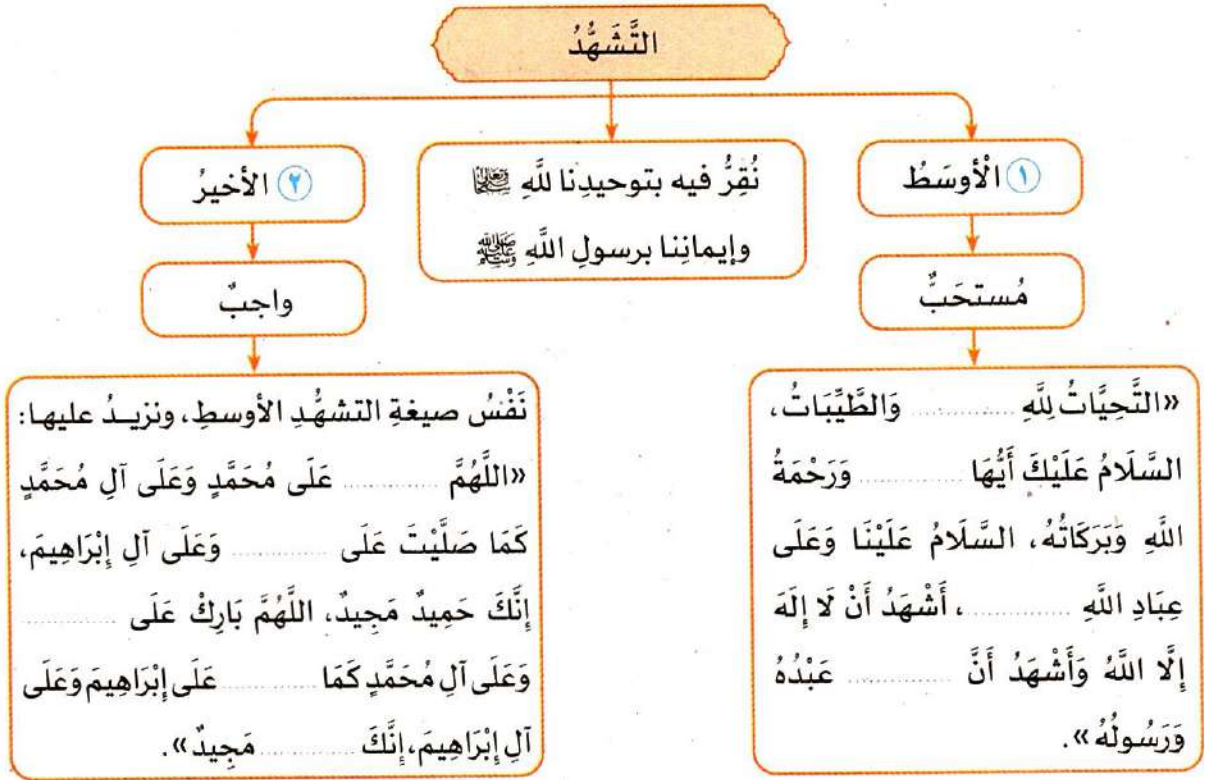 التَّشَهُّدُ
١ الْأوسَطُ
مُستحَبٌّ
«التَّحِيَّاتُ لِلَّهِ ............ وَالطَّيِّبَاتُ،
السَّلَامُ عَلَيْكَ أَيُّهَا ............ وَرَحْمَةُ
اللَّهِ وَبَرَكَاتُهُ، السَّلَامُ عَلَيْنَا وَعَلَى
عِبَادِ اللَّهِ ............، أَشْهَدُ أَنْ لَا إِلَهَ
إِلَّا اللَّهُ وَأَشْهَدُ أَنَّ ............ عَبْدُهُ
وَرَسُولُهُ».
نُقِرُّ فيه بتوحيدِنا للَّهِ سبحانه وتعالى
وإيمانِنا برسولِ اللَّهِ ﷺ
٢ الأخيرُ
واجبٌ
نَفْسُ صيغةِ التشهُّدِ الأوسطِ، ونزيـدُ عليهـا:
«اللَّهُمَّ ............ عَلَى مُحَمَّدٍ وَعَلَى آلِ مُحَمَّدٍ
كَمَا صَلَّيْتَ عَلَى ............ وَعَلَى آلِ إِبْرَاهِيمَ،
إِنَّكَ حَمِيدٌ مَجِيدٌ، اللَّهُمَّ بَارِكْ عَلَى ............
وَعَلَى آلِ مُحَمَّدٍ كَمَا ............ عَلَى إِبْرَاهِيمَ وَعَلَى
آلِ إِبْرَاهِيمَ، إِنَّكَ ............ مَجِيدٌ».